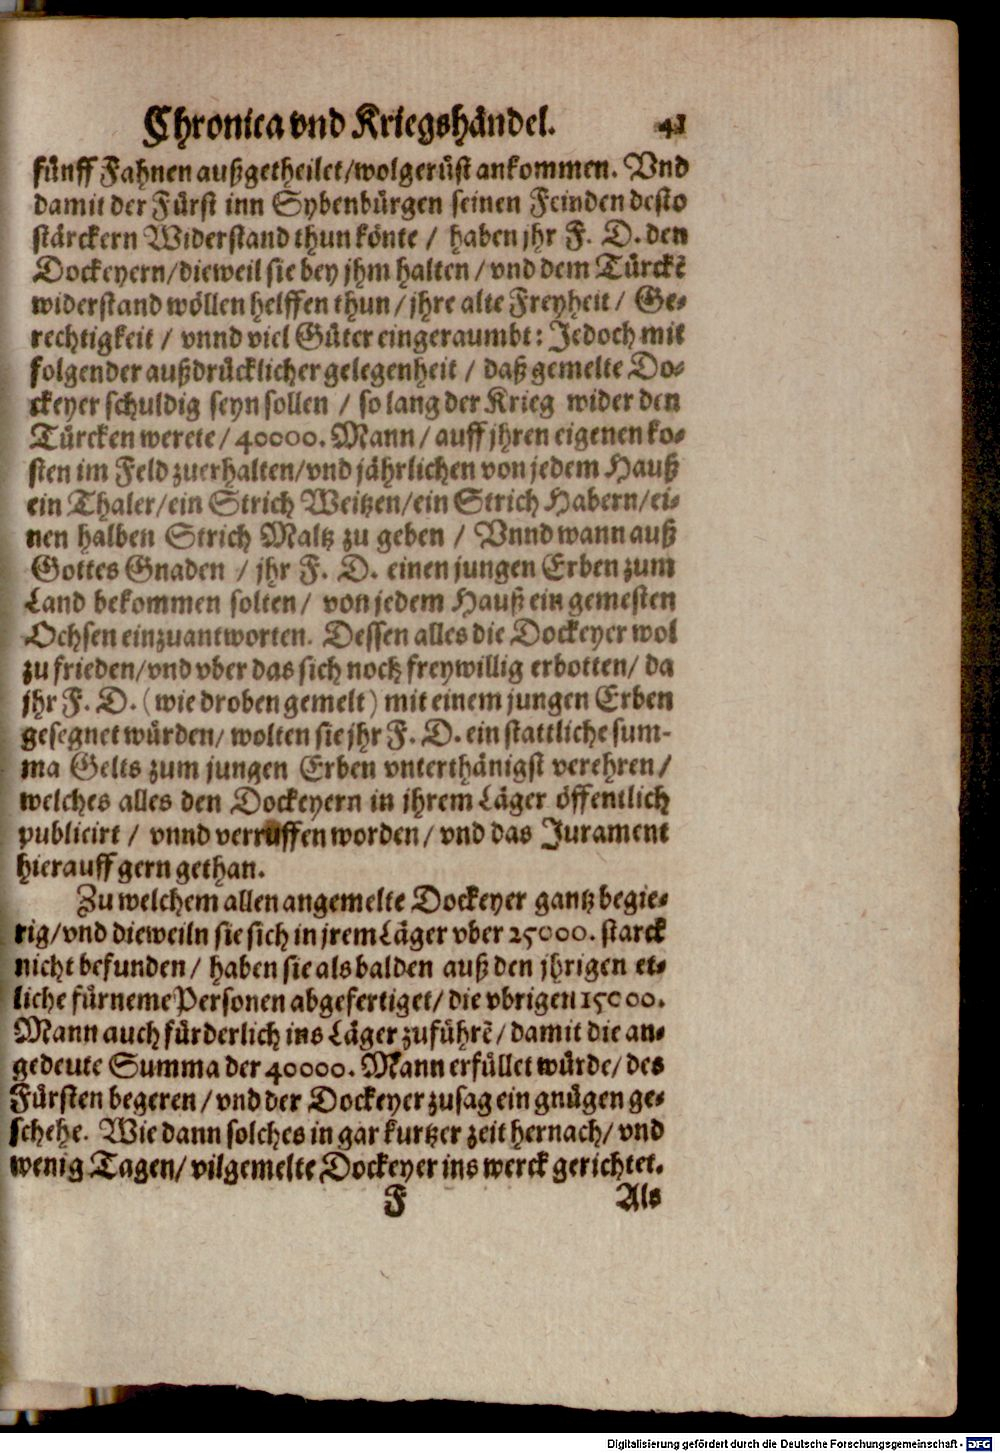 Chronica vnd Kriegshändel. 41
fünff Fahnen außgetheilet/wolgerüst ankommen. Vnd
damit der Fürst inn Sybenbürgen seinen Feinden desto
stärckern Widerstand thun könte / haben jhr F. D. den
Dockeyern/dieweil sie bey jhm halten / vnd dem Türckē
widerstand wöllen helffen thun / jhre alte Freyheit / Ge-
rechtigkeit / vnnd viel Güter eingeraumbt: Jedoch mit
folgender außdrücklicher gelegenheit / daß gemelte Do-
ckeyer schuldig seyn sollen / so lang der Krieg wider den
Türcken werete / 40000. Mann / auff jhren eigenen ko-
sten im Feld zuerhalten/vnd jährlichen von jedem Hauß
ein Thaler/ein Strich Weitzen/ein Strich Habern/ei-
nen halben Strich Maltz zu geben / Vnnd wann auß
Gottes Gnaden / jhr F. D. einen jungen Erben zum
Land bekommen solten / von jedem Hauß ein gemesten
Ochsen einzuantworten. Dessen alles die Dockeyer wol
zu frieden/vnd vber das sich noch freywillig erbotten/ da
jhr F. D. (wie droben gemelt) mit einem jungen Erben
gesegnet würden/ wolten sie jhr F. D. ein stattliche sum-
ma Gelts zum jungen Erben vnterthänigst verehren/
welches alles den Dockeyern in jhrem Läger öffentlich
publicirt / vnnd verruffen worden/ vnd das Jurament
hierauff gern gethan.
Zu welchem allen angemelte Dockeyer gantz begie-
rig/vnd dieweiln sie sich in jrem Läger vber 25000. starck
nicht befunden/ haben sie als balden auß den jhrigen et-
liche fürneme Personen abgefertiget/ die vbrigen 15000.
Mann auch fürderlich ins Läger zuführē/ damit die an-
gedeute Summa der 40000. Mann erfüllet würde/ des
Fürsten begeren/vnd der Dockeyer zusag ein gnügen ge-
schehe. Wie dann solches in gar kurtzer zeit hernach/ vnd
wenig Tagen/ vilgemelte Dockeyer ins werck gerichtet.
F Als
Digitalisierung gefördert durch die Deutsche Forschungsgemeinschaft - DFG